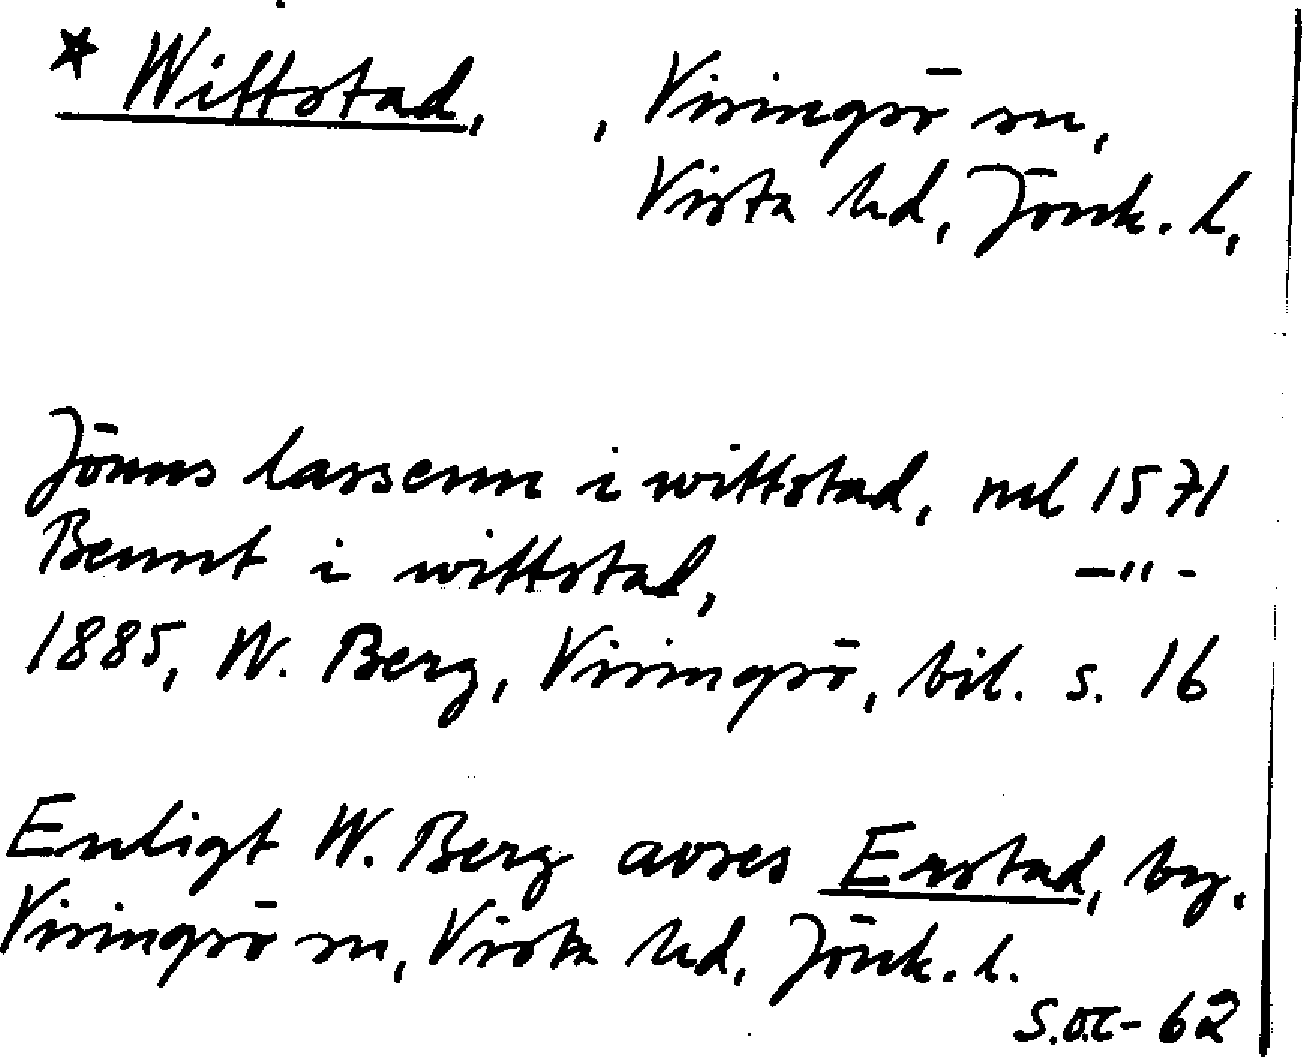 * Wittstad, , Visingsö sn,
Vista hd, Jönk. l,
Jönns lassenn i wittstad, ml 1571
Bennt i wittstad, -"-
1885, W. Berg, Visingsö, bil. s. 16
Enligt W. Berg avses Erstad, by.
Visingsö sn, Vista hd, Jönk. l.